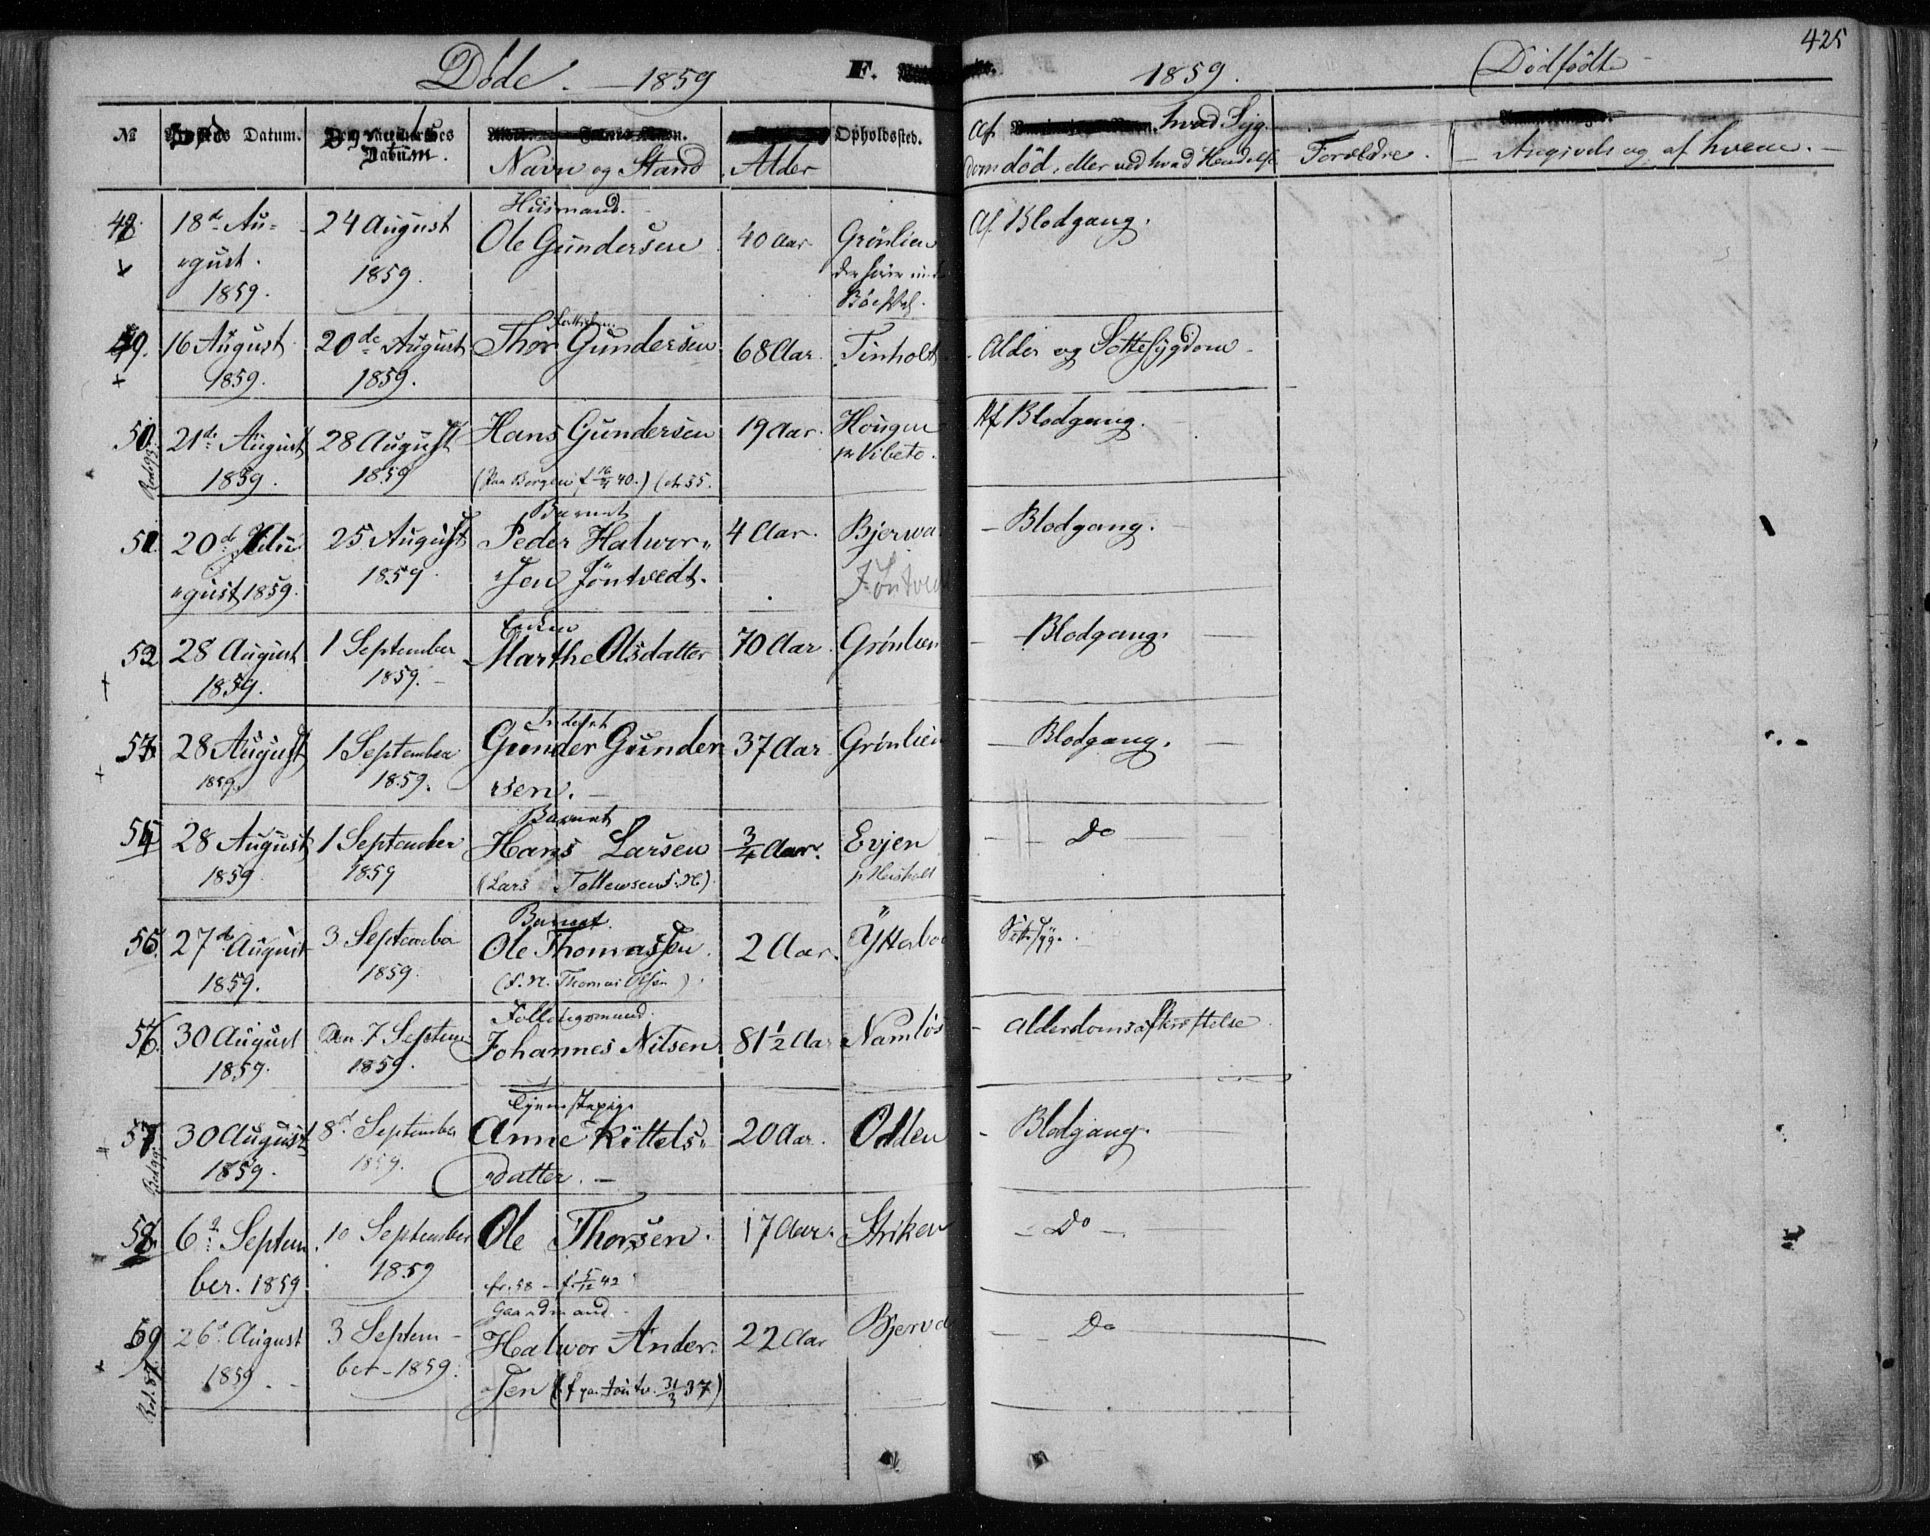 Døde. — 1859 F. 1859. Dødfødte 425
№ Døds Datum. Begravelses Datum. Navn og Stand Alder Opholdssted. Af hvad Syg-
dom død, eller ved hvad Hendelse Forældre. Angivelse og af hvem.
Husmand.
18de Au- 24 August Ole Gundersen 40 Aar Grönlien Af Blodgang.
gust. 1859.
1859.
49. 16 August 20de August Thor Gundersen 68 Aar. Tinholt Alder og Sottesygdom
1859. 1859.
50. 21de August 28 August Hans Gundersen 19 Aar. Hougen Af Blodgang.
1859. 1859 Vibeto.
Barnet
51. 20de 25 August Peder Halvor- 4 Aar. Bjerva Blodgang.
gust 1859. 1859. sen Jöntvedt. Jöntved
Enken
52 28 August 1 September Marthe Olsdatter 70 Aar. Grönlien Blodgang.
1859. 1859.
Inderst
53. 28 August 1 September Gunder Gunder 37 Aar Grönlien Blodgang.
1859. 1859. sen.
Barnet
54 28 August 1 September Hans Larsen 3/4 Aar. Evjen Do
1859. 1859 (Lars Tollewsens N)
Barnet
55. 27de August 3 September Ole Thomassen. 2 Aar. Ytterbo Sottesyg.
1859. 1859. (S. N. Thomas Olsen)
56. 30 August Den 7 Septem Johannes Nilsen 81 1/2 Aar Namløs Alderdomsafkræftelse
1859. 1859.
Tjenestepige
57. 30 August 8de September Anne Kittels- 20 Aar. Odden Blodgang.
1859. 1859. datter.
58. 6te Septem 10 September Ole Thorsen. 17 Aar. Striken Do
ber. 1859 1859 fr. 58 – f. 5/12 42
Gaardmand.
59 26de August 3 Septem- Halvor Ander- 22 Aar Bjerva Do
1859. ber – 1859. sen 31/3 37)